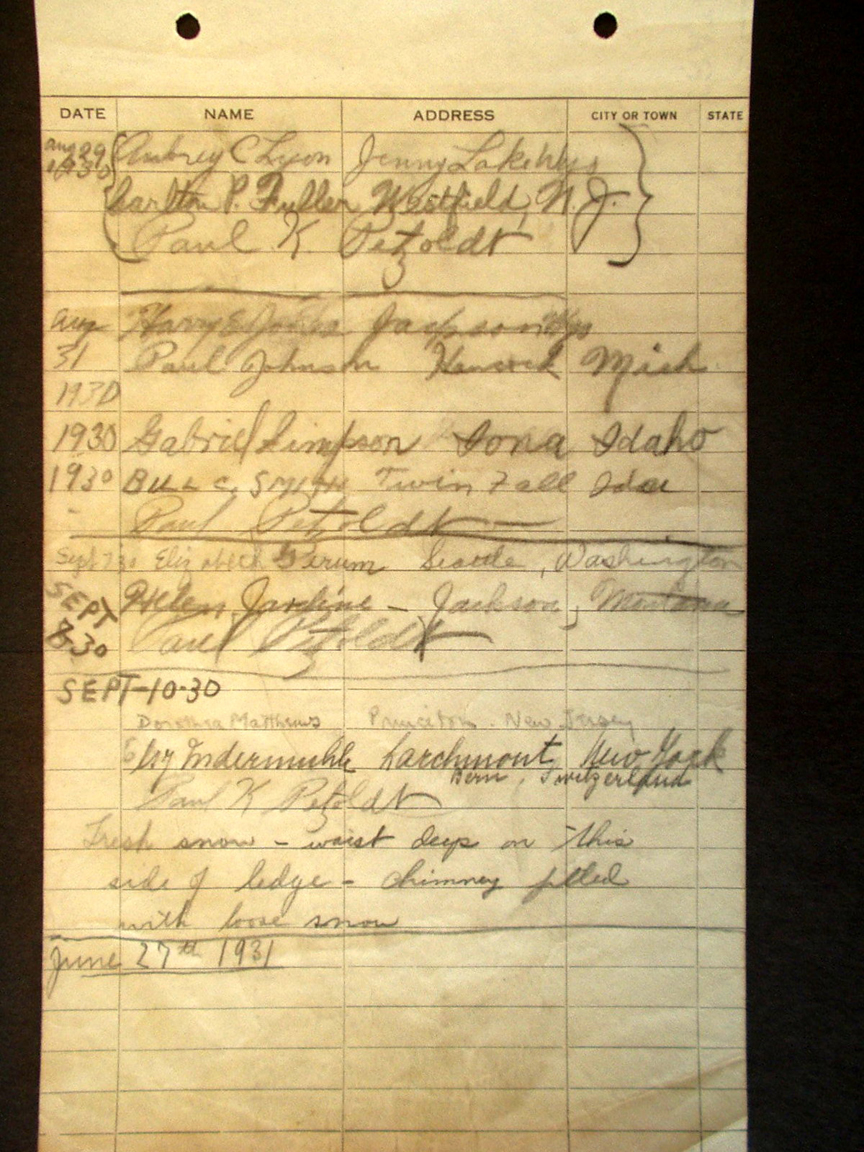 DATE NAME ADDRESS CITY OR TOWN STATE
Aug 29 Aubrey C Lyon Jenny Lake Wyo
1930 Carlton P. Fuller Westfield, N.J.
Paul K. Petzoldt
Aug Harry E Jackson Wyo
31 Paul Johnson Hancock Mich.
1930
1930 Gabriel Simpson Iona Idaho
1930 BILL C. SMITH Twin Fall Ida
Paul Petzoldt
Sept 7 30 Elizabeth Seattle, Washington
SEPT Helen Jardine - Jackson, Montana
7-30 Paul Petzoldt
SEPT-10-30
Dorothea Matthews Princeton. New Jersey
Indermuhle Larchmont, New York
Bern, Switzerland
Paul K Petzoldt
Fresh snow - waist deep on this
side of ledge - chimney filled
with loose snow
June 27th 1931